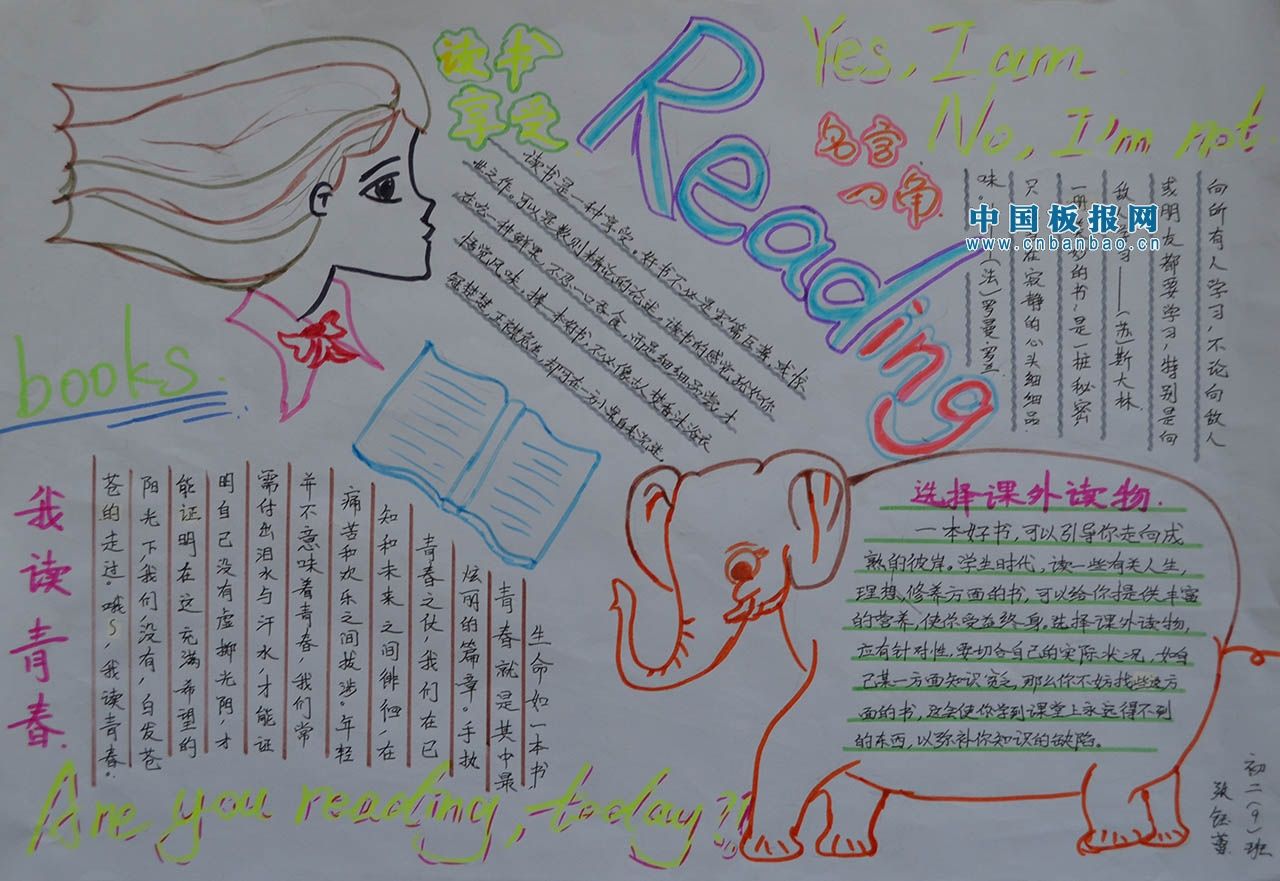 读书
享受
Reading
Yes, I am
No, I'm not
名言
一角
中国板报网
www.cnbanbao.cn
向所有人学习，不论向敌人
或朋友都要学习，特别是向
敌人学习——（苏）斯大林
一册美妙的书，是一桩秘密
只在寂静的心头细细品
味。——（法）罗曼·罗兰
读书是一种享受。好书不必是宏篇巨著、惊
世之作。可以是数则精论的论述。读书的感觉
一种鲜果，不忍一口吞食，而是细细品尝，才
悟觉风味。择一本好书，不必像古人焚香沐浴，衣
冠楚楚，正襟危坐
books
我读青春
生命如一本书
青春就是其中最
炫丽的篇章。手执
青春之仗，我们在已
知和未来之间徘徊，在
痛苦和欢乐之间拔涉。年轻
并不意味着青春，我们常
需付出泪水与汗水，才能证
明自己没有虚掷光阴，才
能证明在这充满希望的
阳光下，我们没有，白发苍
苍的走过。哦~，我读青春。
选择课外读物
一本好书，可以引导你走向成
熟的彼岸。学生时代，读一些有关人生，
理想、修养方面的书，可以给你提供丰富
的营养，使你受益终身。选择课外读物，
应有针对性，要切合自己的实际状况，如自
己某一方面知识贫乏，那么你不妨找些这方
面的书，这会使你学到课堂上永远得不到
的东西，以弥补你知识的缺陷。
Are you reading, today?!
初二（9）班
张钰蕾